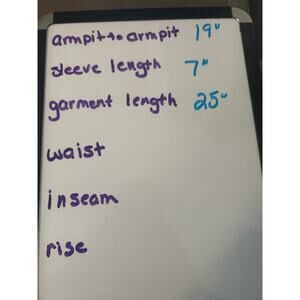 armpit to armpit 19"
sleeve length 7"
garment length 25"
waist
inseam
rise